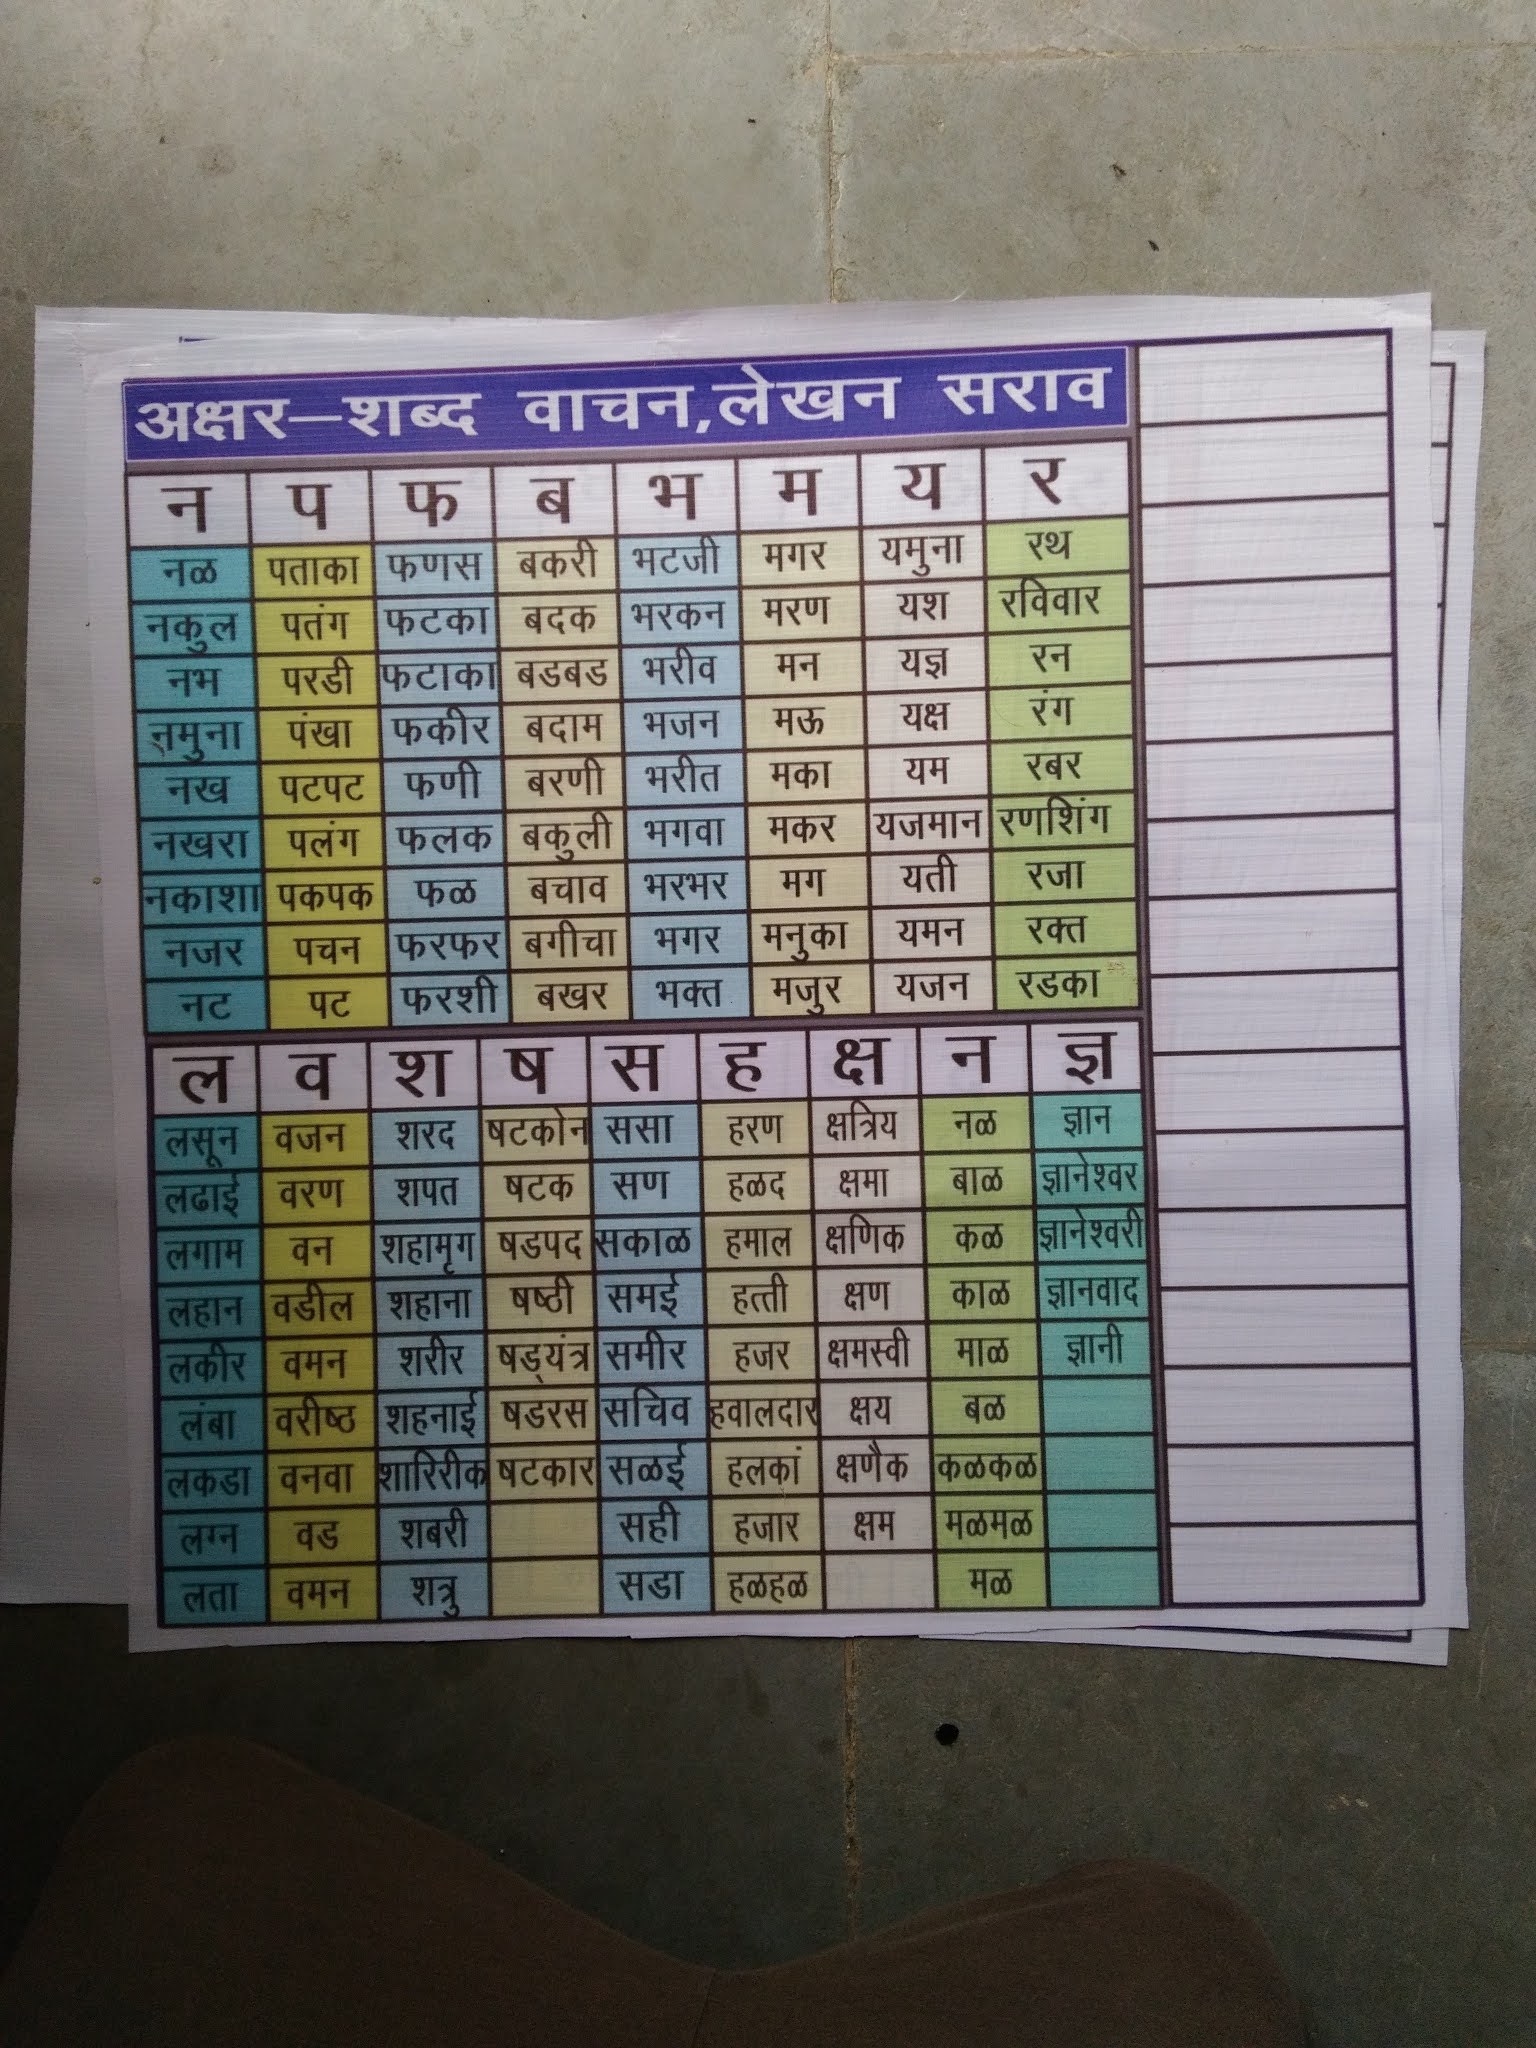 अक्षर–शब्द वाचन,लेखन सराव
न प फ ब भ म य र
नळ पताका फणस बकरी भटजी मगर यमुना रथ
नकुल पतंग फटका बदक भरकन मरण यश रविवार
नभ परडी फटाका बडबड भरीव मन यज्ञ रन
नमुना पंखा फकीर बदाम भजन मऊ यक्ष रंग
नख पटपट फणी बरणी भरीत मका यम रबर
नखरा पलंग फलक बकुली भगवा मकर यजमान रणशिंग
नकाशा पकपक फळ बचाव भरभर मग यती रजा
नजर पचन फरफर बगीचा भगर मनुका यमन रक्त
नट पट फरशी बखर भक्त मजुर यजन रडका
ल व श ष स ह क्ष न ज्ञ
लसून वजन शरद षटकोन ससा हरण क्षत्रिय नळ ज्ञान
लढाई वरण शपत षटक सण हळद क्षमा बाळ ज्ञानेश्वर
लगाम वन शहामृग षडपद सकाळ हमाल क्षणिक कळ ज्ञानेश्वरी
लहान वडील शहाना षष्ठी समई हत्ती क्षण काळ ज्ञानवाद
लकीर वमन शरीर षड्यंत्र समीर हजर क्षमस्वी माळ ज्ञानी
लंबा वरीष्ठ शहनाई षडरस सचिव हवालदार क्षय बळ
लकडा वनवा शारिरीक षटकार सळई हलकां क्षणैक कळकळ
लग्न वड शबरी सही हजार क्षम मळमळ
लता वमन शत्रु सडा हळहळ मळ